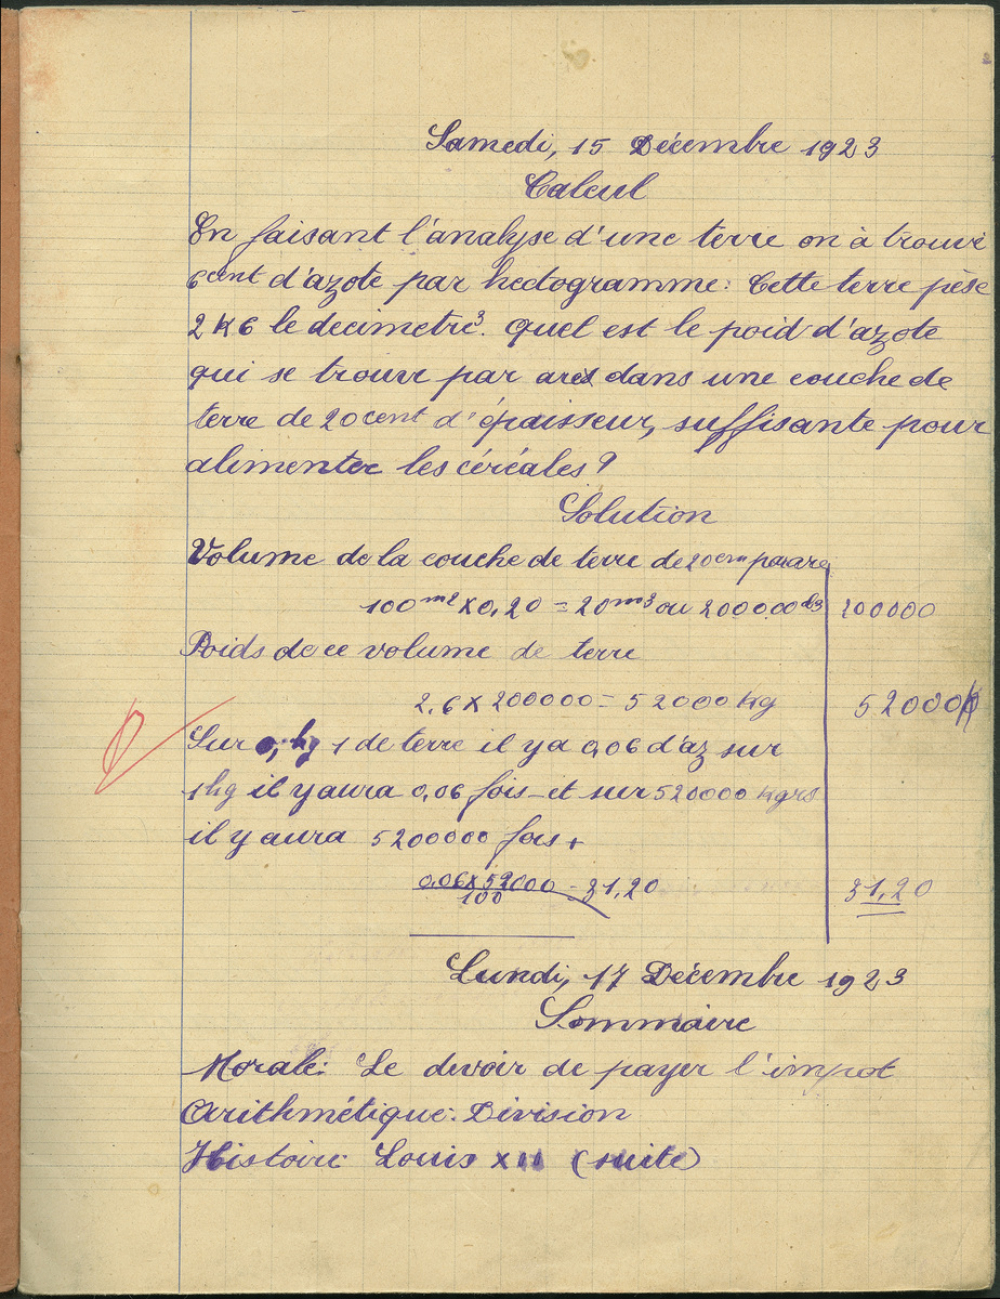 Samedi, 15 Décembre 1923
Calcul
En faisant l'analyse d'une terre on à trouvé
6cent d'azote par hectogramme: Cette terre pèse
2K6 le decimetre3. Quel est le poid d'azote
qui se trouve par are dans une couche de
terre de 20cent d'épaisseur, suffisante pour
alimenter les céréales?
Solution
Volume de la couche de terre de 20cm par are
100m2 x 0,20 = 20m3 ou 200000 d3 200000
Poids de ce volume de terre
2,6 x 200000 = 52000 Kg 52000
Sur 0, kg 1 de terre il y a 0,06 d'az sur
1 kg il y aura 0,06 fois - et sur 520000 Kgrs
il y aura 5200000 fois +
0,06 x 52000 = 31,20 31,20
100
Lundi, 17 Décembre 1923
Sommaire
Morale: Le devoir de payer l'impot
Arithmétique: Division
Histoire: Louis XII (suite)